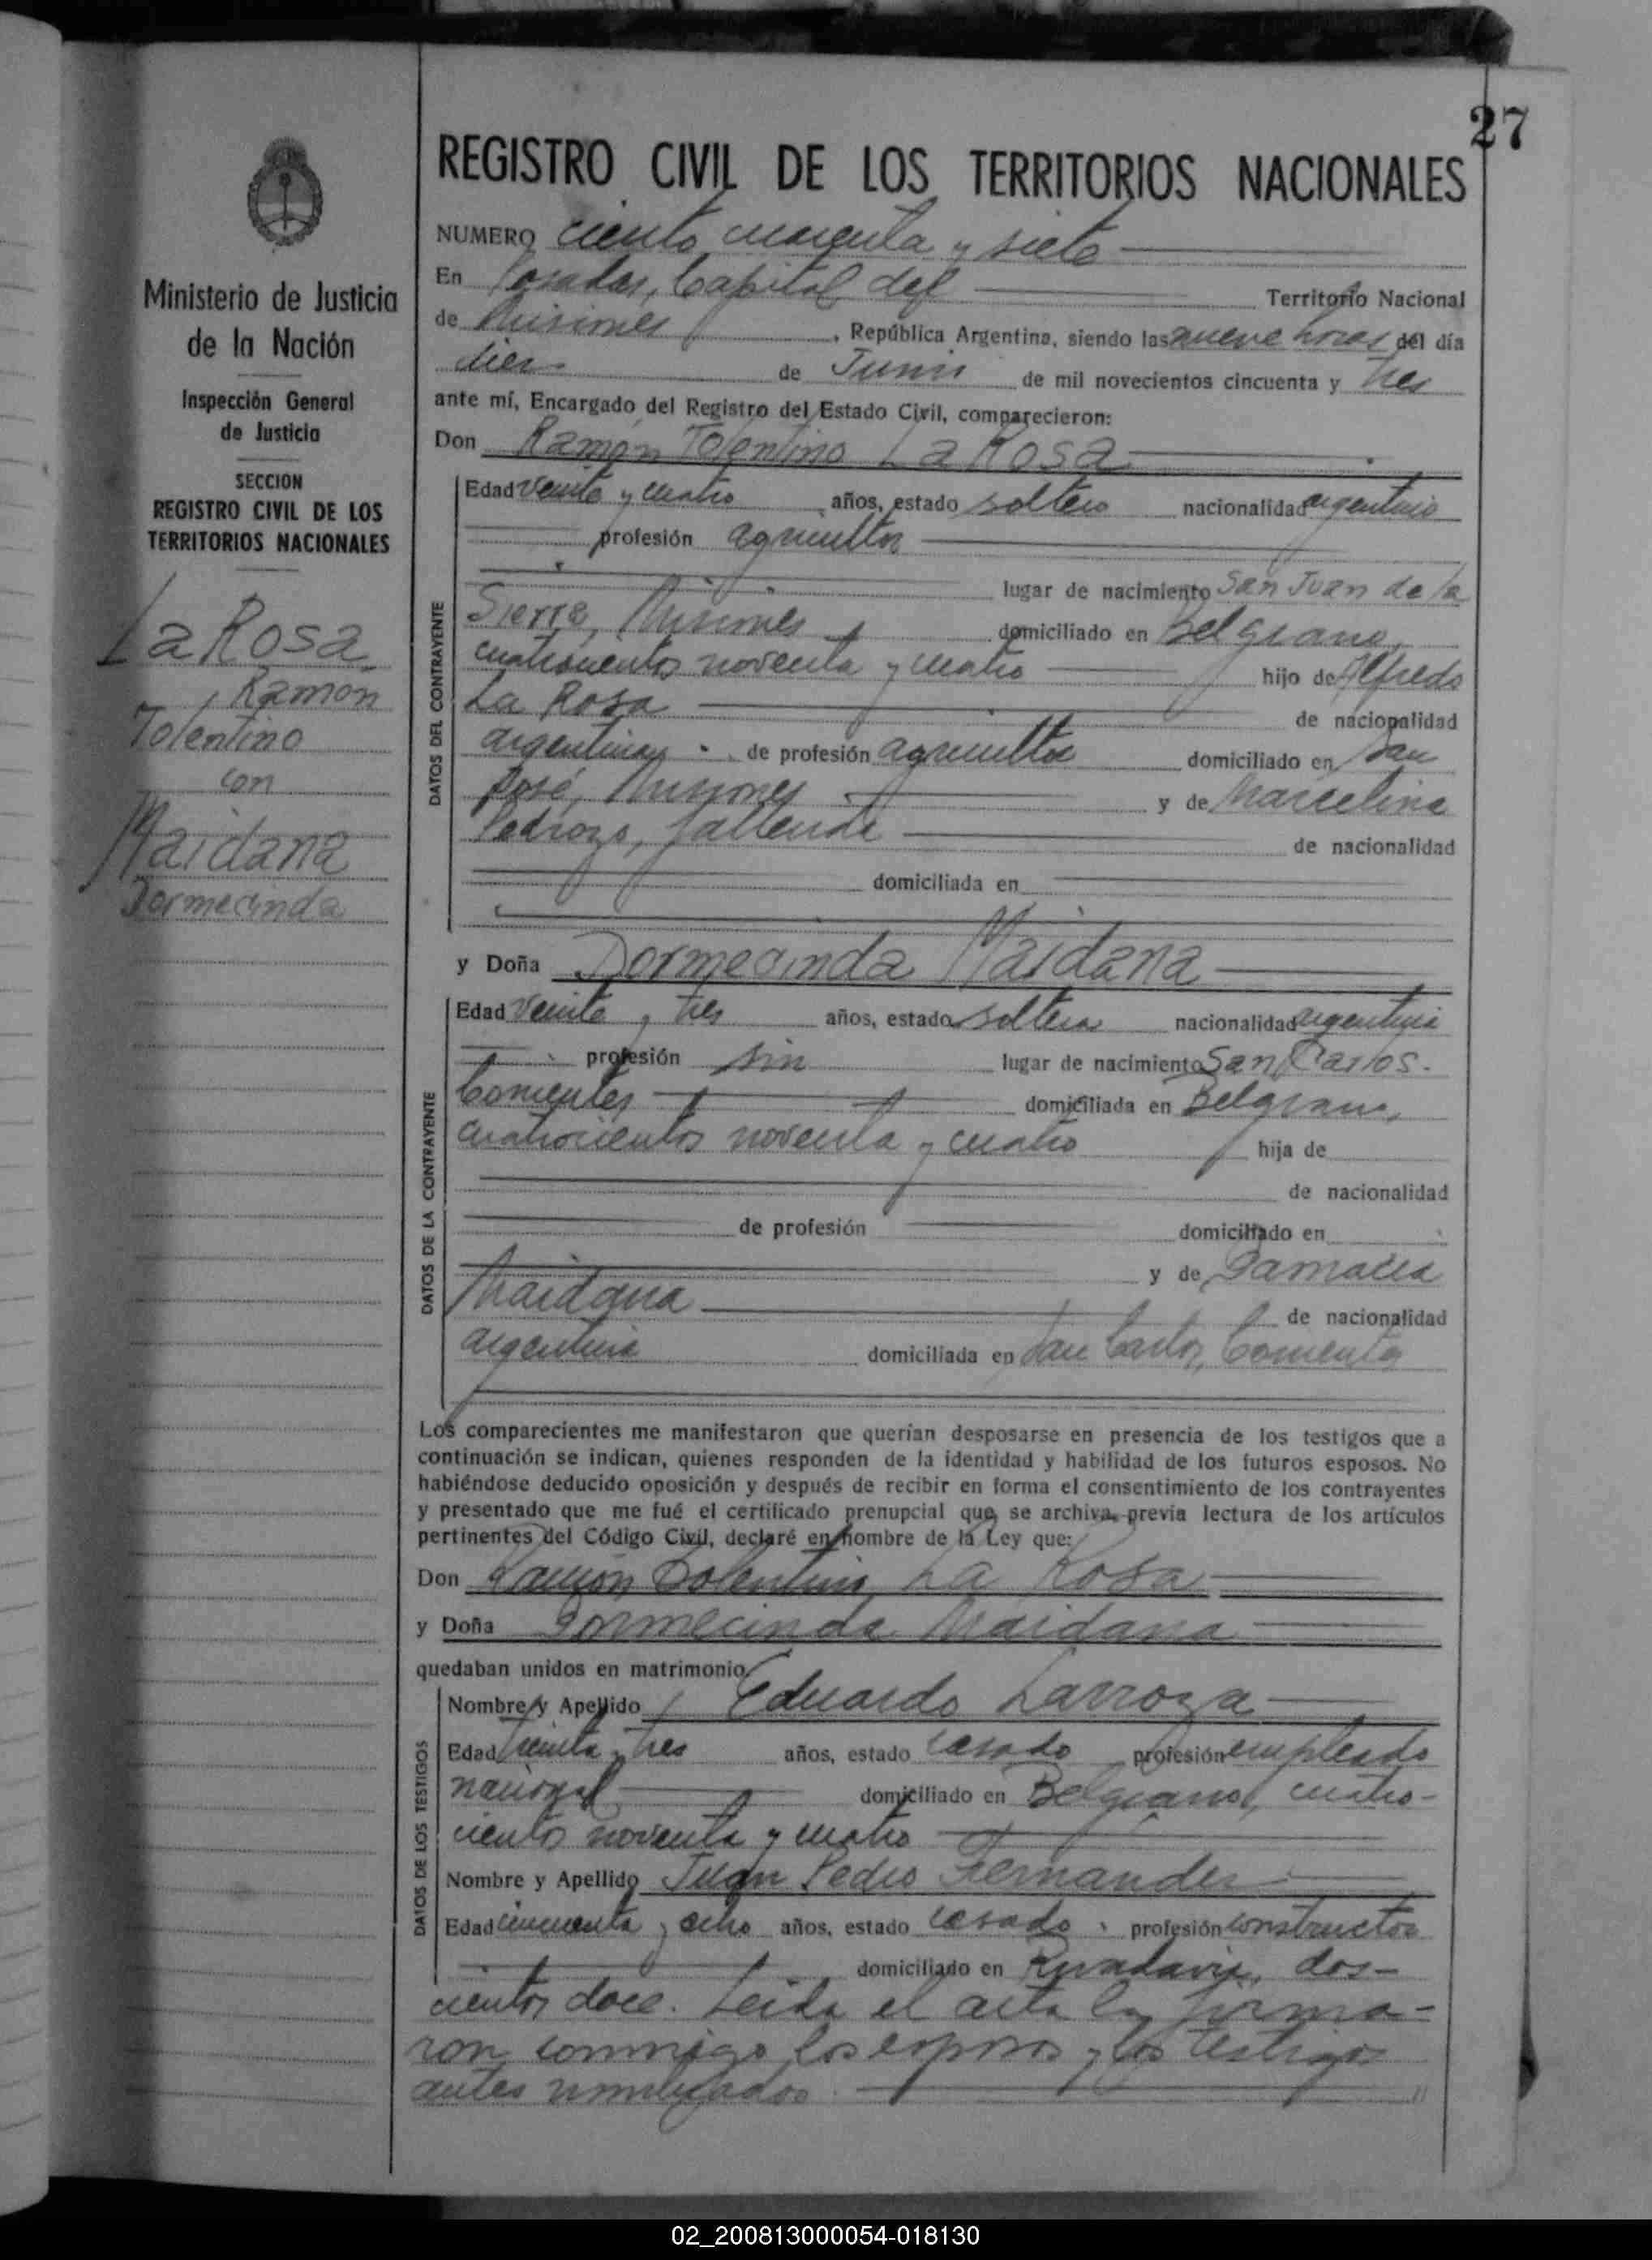 27
REGISTRO CIVIL DE LOS TERRITORIOS NACIONALES
Ministerio de Justicia
de la Nación
Inspección General
de Justicia
SECCION
REGISTRO CIVIL DE LOS
TERRITORIOS NACIONALES
La Rosa,
Ramón
Tolentino
con
Maidana
Dormecinda
NUMERO ciento cuarenta y siete
En Posadas, Capital del Territorio Nacional
de Misiones, República Argentina, siendo las nueve horas del día
diez de Junio de mil novecientos cincuenta y tres
ante mí, Encargado del Registro del Estado Civil, comparecieron:
Don Ramón Tolentino La Rosa
DATOS DEL CONTRAYENTE
Edad veinte y cuatro años, estado soltero nacionalidad argentino
profesión agricultor
lugar de nacimiento San Juan de la
Sierra, Misiones domiciliado en Belgrano,
cuatrocientos noventa y cuatro hijo de Alfredo
La Rosa de nacionalidad
argentina de profesión agricultor domiciliado en San
José, Misiones y de Marcelina
Pedrozo, fallecida de nacionalidad
domiciliada en
y Doña Dormecinda Maidana
DATOS DE LA CONTRAYENTE
Edad veinte y tres años, estado soltera nacionalidad argentina
profesión sin lugar de nacimiento San Carlos.
Corrientes domiciliada en Belgrano,
cuatrocientos noventa y cuatro hija de
de nacionalidad
de profesión domiciliado en
y de Damacia
Maidana de nacionalidad
argentina domiciliada en San Carlos, Corrientes
Los comparecientes me manifestaron que querían desposarse en presencia de los testigos que a
continuación se indican, quienes responden de la identidad y habilidad de los futuros esposos. No
habiéndose deducido oposición y después de recibir en forma el consentimiento de los contrayentes
y presentado que me fué el certificado prenupcial que se archiva, previa lectura de los artículos
pertinentes del Código Civil, declaré en nombre de la Ley que:
Don Ramón Tolentino La Rosa
y Doña Dormecinda Maidana
quedaban unidos en matrimonio
DATOS DE LOS TESTIGOS
Nombre y Apellido Eduardo Larroza
Edad treinta y tres años, estado casado profesión empleado
nacional domiciliado en Belgrano, cuatro-
cientos noventa y cuatro
Nombre y Apellido Juan Pedro Fernandez
Edad cincuenta y ocho años, estado casado profesión constructor
domiciliado en Rivadavia, dos-
cientos doce. Leida el acta la firma-
ron conmigo los esposos y los testigos
antes nombrados.
02_200813000054-018130